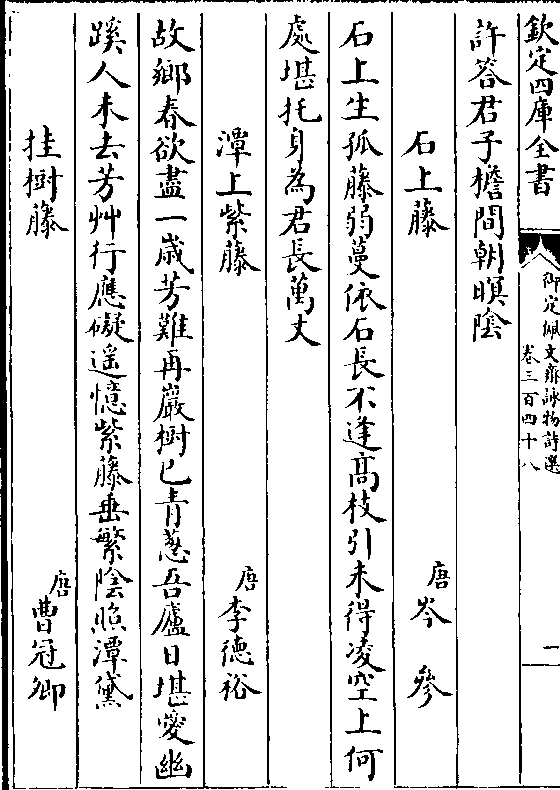 欽定四庫全書
御定佩文齋詠物詩選
卷三百四十八
一
許答君子檐間朝暝陰
石上藤
唐
岑參
石上生孤藤弱蔓依石長不逢高枝引未得凌空上何
處堪托身為君長萬丈
潭上紫藤
唐
李德裕
故鄉春欲盡一歲芳難再巖樹已青蔥吾廬日堪愛幽
蹊人未去芳艸行應礙遥憶紫藤垂繁陰照潭黛
挂樹藤
唐
曹冠卿